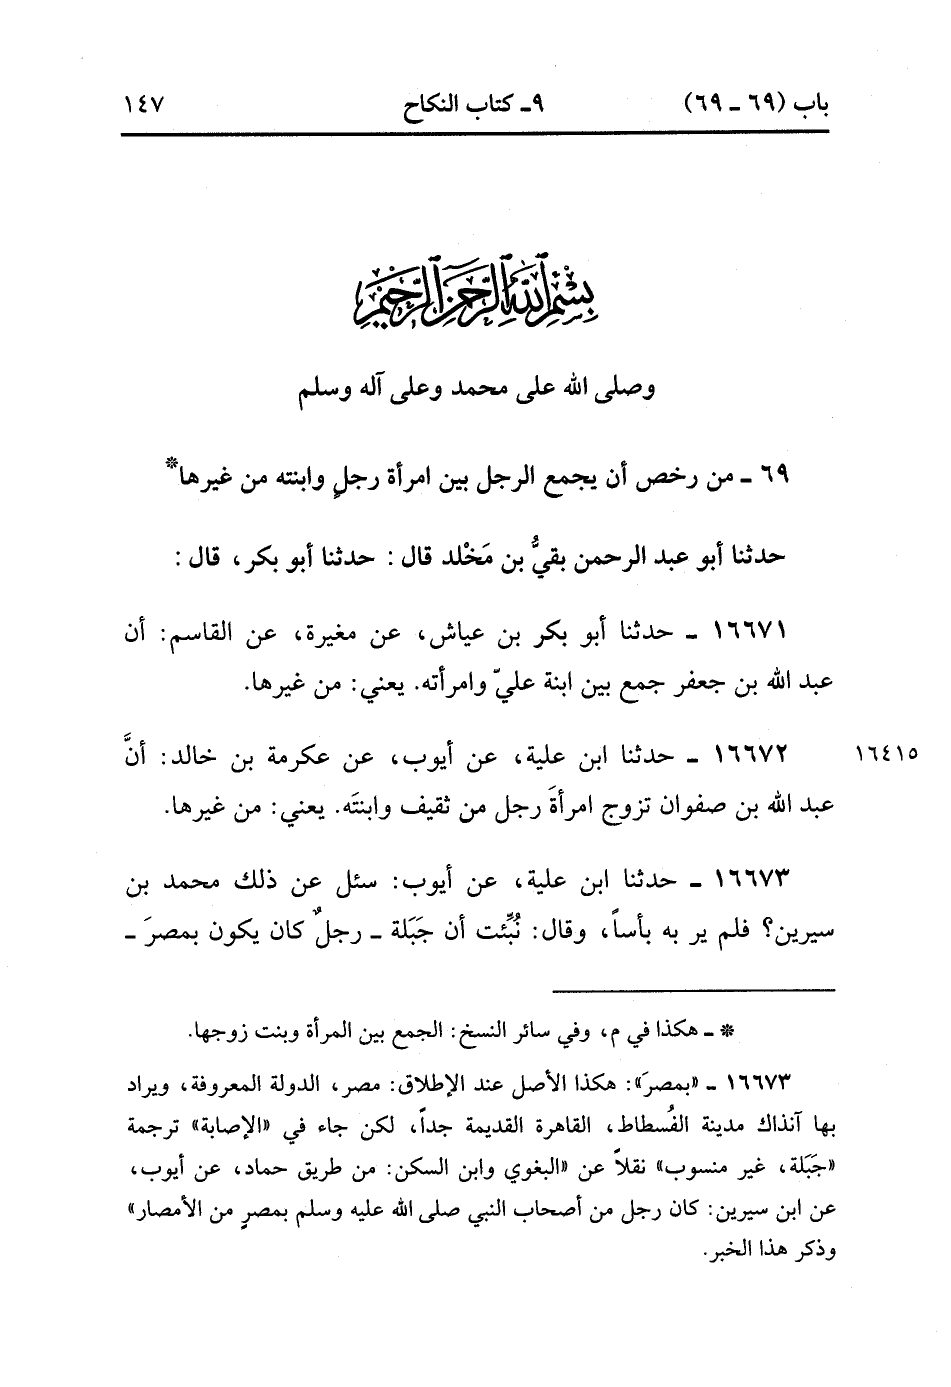 باب (٦٩ ـ ٦٩) ٩ـ كتاب النكاح ١٤٧
بسم الله الرحمن الرحيم
وصلى الله على محمد وعلى آله وسلم
٦٩ ـ من رخص أن يجمع الرجل بين امرأة رجلٍ وابنته من غيرها*
حدثنا أبو عبد الرحمن بقيُّ بن مَخْلد قال : حدثنا أبو بكر، قال :
١٦٦٧١ ـ حدثنا أبو بكر بن عياش، عن مغيرة، عن القاسم: أن
عبد الله بن جعفر جمع بين ابنة عليّ وامرأته. يعني: من غيرها.
١٦٦٧٢ ـ حدثنا ابن علية، عن أيوب، عن عكرمة بن خالد: أنَّ ١٦٤١٥
عبد الله بن صفوان تزوج امرأةَ رجل من ثقيف وابنتَه. يعني: من غيرها.
١٦٦٧٣ ـ حدثنا ابن علية، عن أيوب: سئل عن ذلك محمد بن
سيرين؟ فلم ير به بأساً، وقال: نُبِّئت أن جَبَلة ـ رجلٌ كان يكون بمصرَ ـ
* ـ هكذا في م، وفي سائر النسخ: الجمع بين المرأة وبنت زوجها.
١٦٦٧٣ ـ «بمصرَ»: هكذا الأصل عند الإطلاق: مصر، الدولة المعروفة، ويراد
بها آنذاك مدينة الفُسطاط، القاهرة القديمة جداً، لكن جاء في «الإصابة» ترجمة
«جَبَلة، غير منسوب» نقلاً عن «البغوي وابن السكن: من طريق حماد، عن أيوب،
عن ابن سيرين: كان رجل من أصحاب النبي صلى الله عليه وسلم بمصرٍ من الأمصار»
وذكر هذا الخبر.